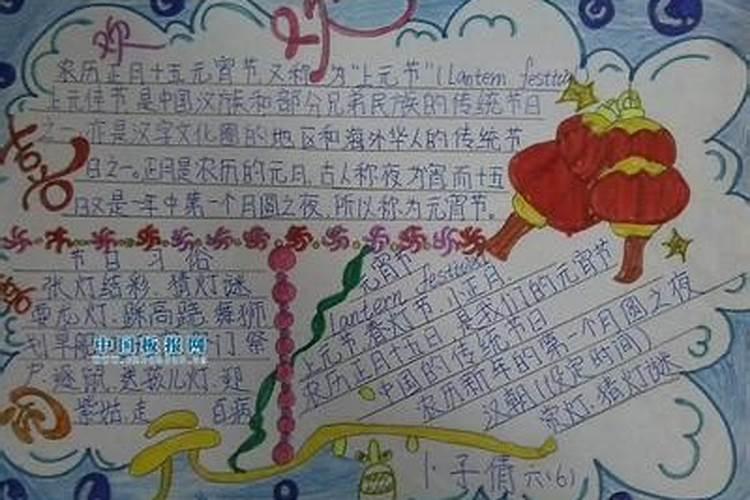 欢
喜
农历正月十五元宵节,又称为“上元节”(Lantern festival)
上元佳节是中国汉族和部分兄弟民族的传统节日
之一,亦是汉字文化圈的地区和海外华人的传统节
日之一。正月是农历的元月,古人称夜为宵而十五
日又是一年中第一个月圆之夜,所以称为元宵节。
节日习俗
张灯结彩、猜灯谜
耍龙灯、踩高跷、舞狮
划旱船 门祭
户、逐鼠、送孩儿灯、迎
紫姑、走 百病
中国板报网
元宵节
lantern festival
上元节春灯节、小正月
农历正月十五日,是我们的元宵节
中国的传统节日
农历新年的第一个月圆之夜
汉朝(设定时间)
赏灯、猜灯谜
元
卜子倩 六(6)